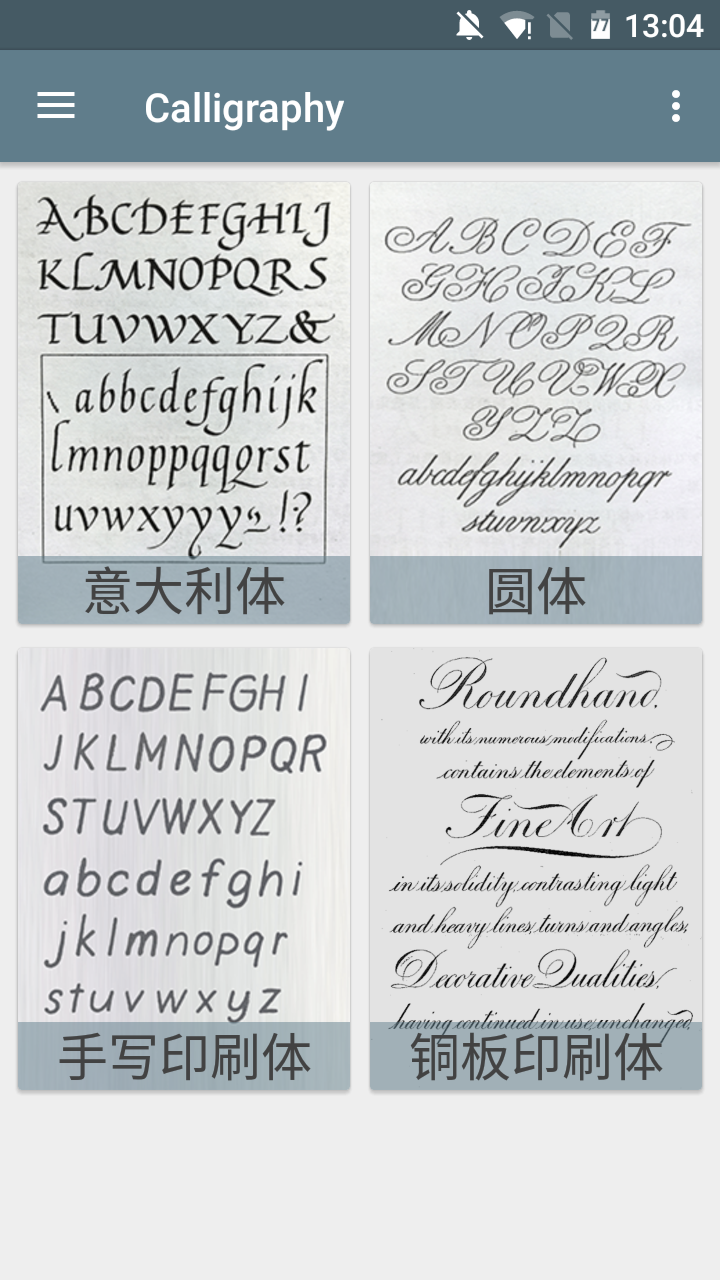 77 13:04
Calligraphy
ABCDEFGHIJ
KLMNOPQRS
TUVWXYZ&
abbcdefghijk
lmnoppqqqrst
uvwxyyyyz!?
意大利体
ABCDEF
GHIJKL
MNOPQR
STUVWX
YZZ
abcdefghijklmnopqr
stuvnxyz
圆体
ABCDEFGHI
JKLMNOPQR
STUVWXYZ
abcdefghi
jklmnopqr
stuvwxyz
手写印刷体
Roundhand.
with its numerous modifications.
contains the elements of
Fine Art
in its solidity, contrasting light
and heavy lines, turns and angles,
Decorative Qualities,
having continued in use, unchanged,
铜板印刷体